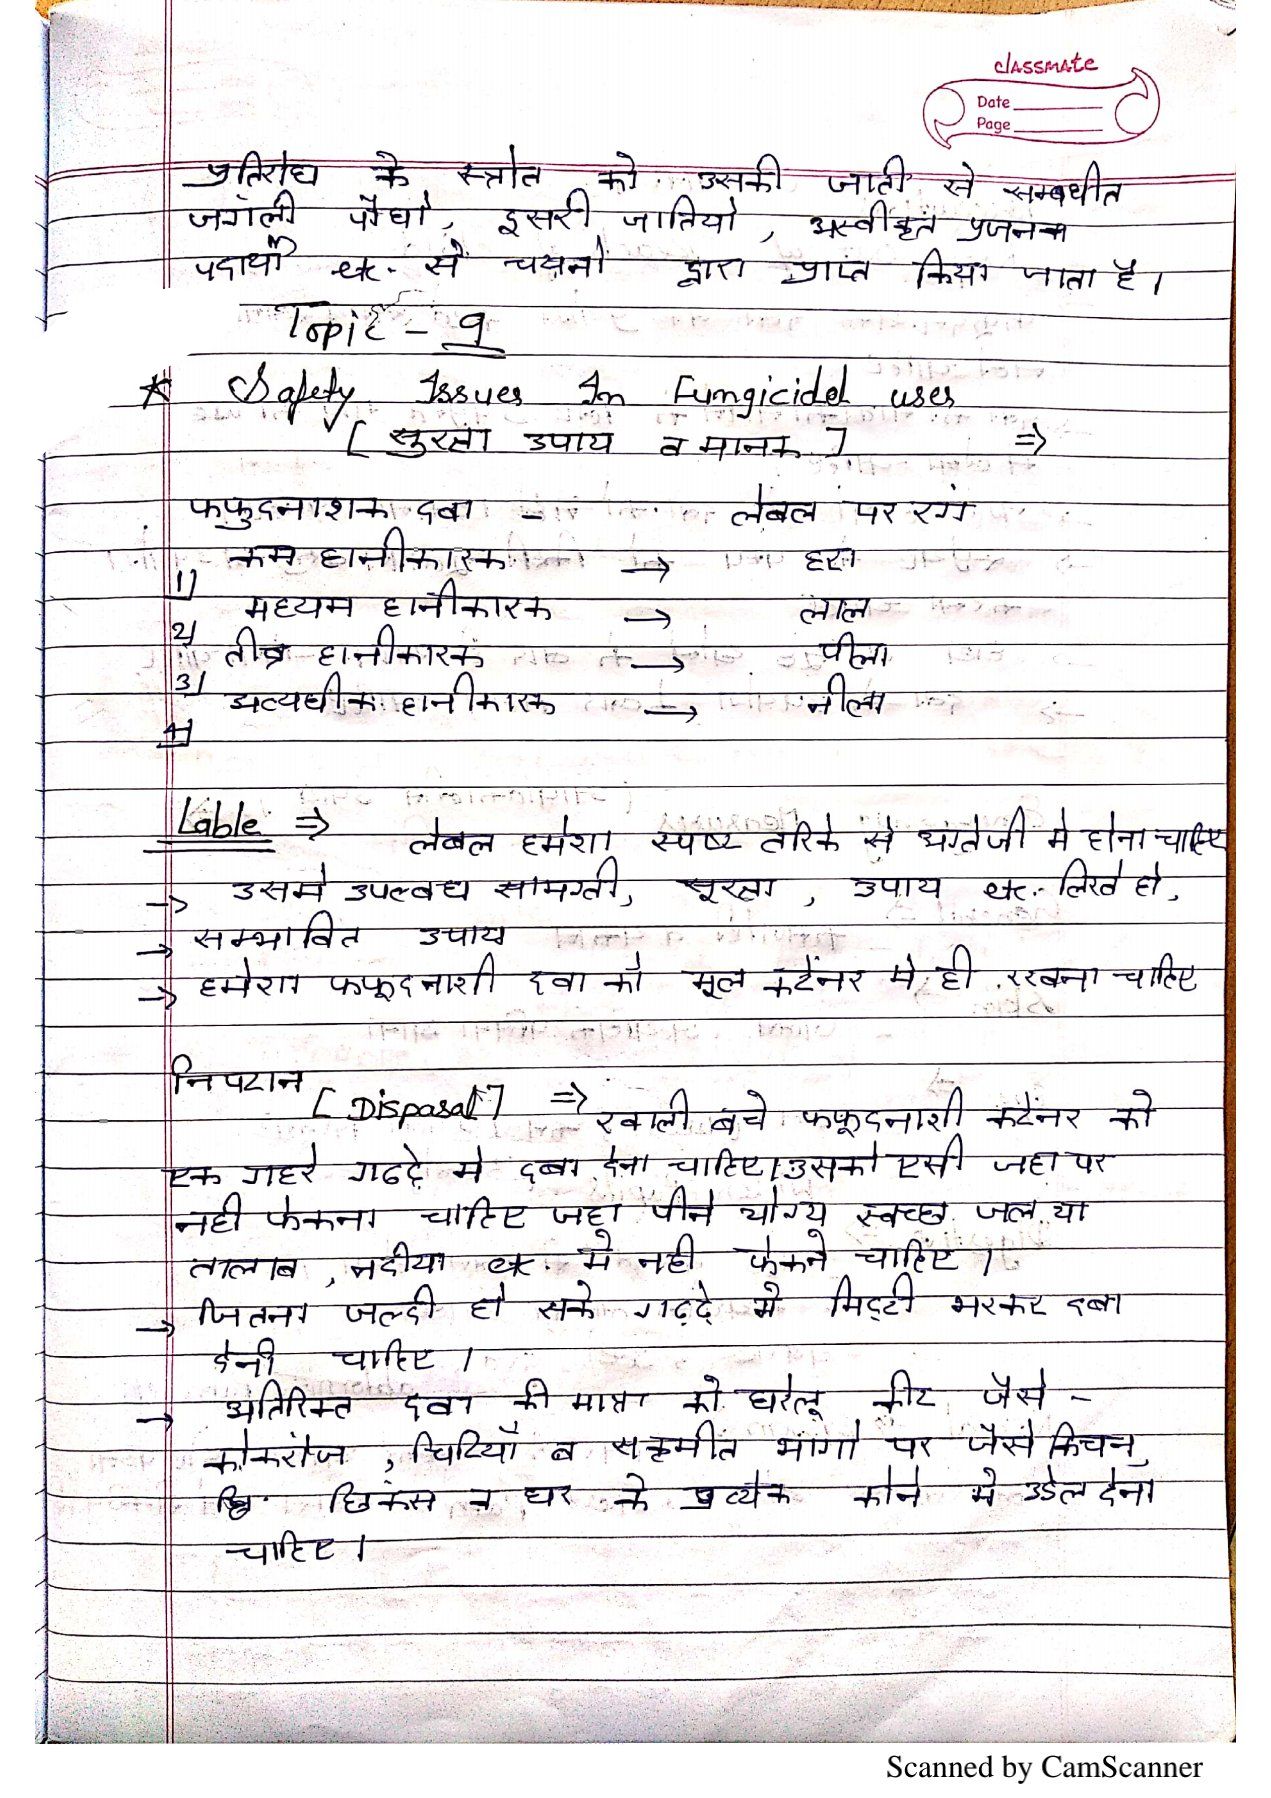 classmate
Date
Page
प्रतिरोध के स्त्रोत को उसकी जाती से सम्बधीत
जगंली पौधो, दुसरी जातियो, अस्वीकृत प्रजनक
पदार्थो etc. से चयनो द्वारा प्राप्त किया जाता है।
Topic - 9
* Safety Issues In Fungicidel uses
[ सुरक्षा उपाय व मानक ] ⇒
फफुदनाशक दवा - लेबल पर रगं
1) कम हानीकारक → हरा
2) मध्यम हानीकारक → लाल
3) तीव्र हानीकारक → पीला
4) अत्यधीक हानीकारक → नीला
Lable ⇒ लेबल हमेशा स्पष्ट तरिके से अंग्रेजी मे होना चाहिए
→ उसमे उपल्बध सामग्री, सूरक्षा, उपाय etc. लिखे हो,
→ सम्भावित उपाय
→ हमेशा फफूदनाशी दवा को मूल कंटेंनर मे ही रखना चाहिए
निपटान [Disposal] ⇒ खाली बचे फफूदनाशी कंटेनर को
एक गहरे गढढे मे दबा देना चाहिए। उसको एसी जहा पर
नही फेकना चाहिए जहा पीने योग्य स्वच्छ जल या
तालाब, नदीया etc. मे नही फेकने चाहिए।
→ जितना जल्दी हो सके गढ्ढे मे मिट्टी भरकर दबा
देनी चाहिए।
→ अतिरिक्त दवा की मात्रा को घरेलू कीट जैसे -
कोकरोज, चिटियाँ व सक्रमीत भागो पर जैसे किचन,
छिकंस व घर के प्रत्येक कोने मे उडेल देना
चाहिए।
Scanned by CamScanner